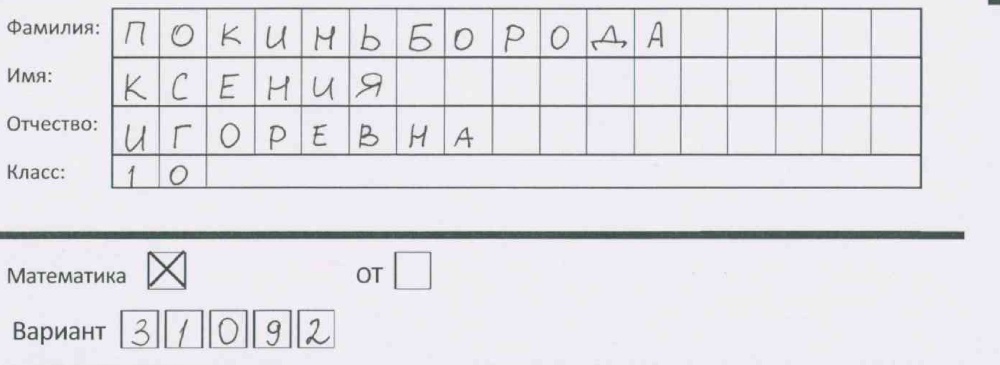 Фамилия: ПОКИНЬБОРОДА
Имя: КСЕНИЯ
Отчество: ИГОРЕВНА
Класс: 10
Математика ☒ ОТ ☐
Вариант 31092